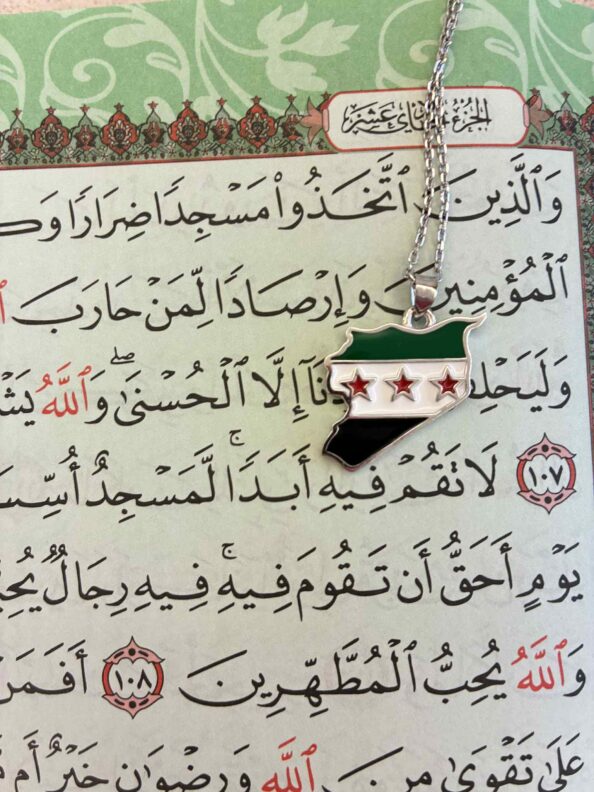 الجزء عشر
وَٱلَّذِينَ ٱتَّخَذُوا۟ مَسْجِدًا ضِرَارًا
ٱلْمُؤْمِنِينَ وَإِرْصَادًا لِّمَنْ حَارَبَ
إِلَّا ٱلْحُسْنَىٰ ۖ وَٱللَّهُ
١٠٧ لَا تَقُمْ فِيهِ أَبَدًا ۚ لَّمَسْجِدٌ
يَوْمٍ أَحَقُّ أَن تَقُومَ فِيهِ ۚ فِيهِ رِجَالٌ
وَٱللَّهُ يُحِبُّ ٱلْمُطَّهِّرِينَ ١٠٨ أَفَمَنْ
عَلَىٰ تَقْوَىٰ مِنَ ٱللَّهِ وَرِضْوَٰنٍ خَيْرٌ أَم